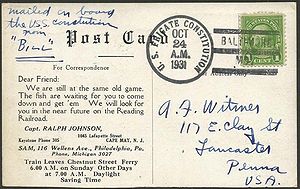 mailed on board
the U.S.S. Constitution
from
"Bill"
Post Card
For Correspondence
Dear Friend:
We are still at the same old game.
The fish are waiting for you to come
down and get 'em. We will look for
you in the near future on the Reading
Railroad.
Capt. RALPH JOHNSON,
1045 Lafayette Street
Keystone 305 CAPE MAY, N. J.
SAM, 116 Wellens Ave., Philadelphia, Pa.
Phone, Michigan 2027
Train Leaves Chestnut Street Ferry
6.00 A. M. on Sunday Other Days
at 7.00 A. M. Daylight
Saving Time
U. S. FRIGATE CONSTITUTION
OCT
24
A.M.
1931
BALTIMORE
MD.
Address Only
A. F. Witmer
117 E. Clay St
Lancaster
Penna
U.S.A.